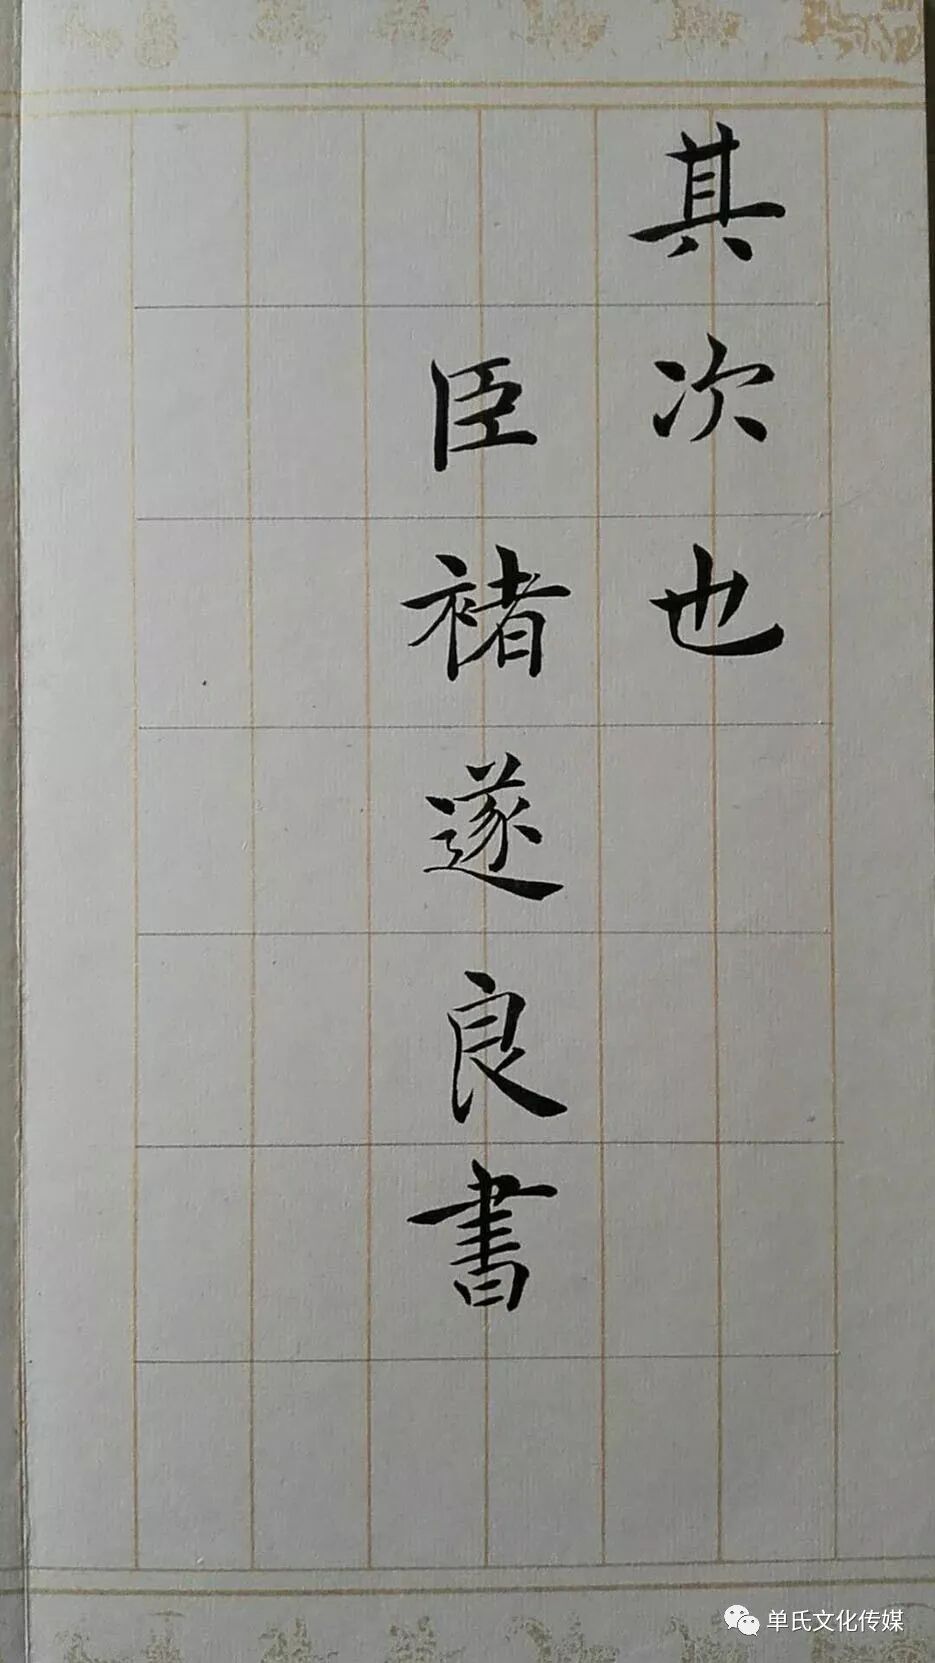 其次也
臣褚遂良書
单氏文化传媒